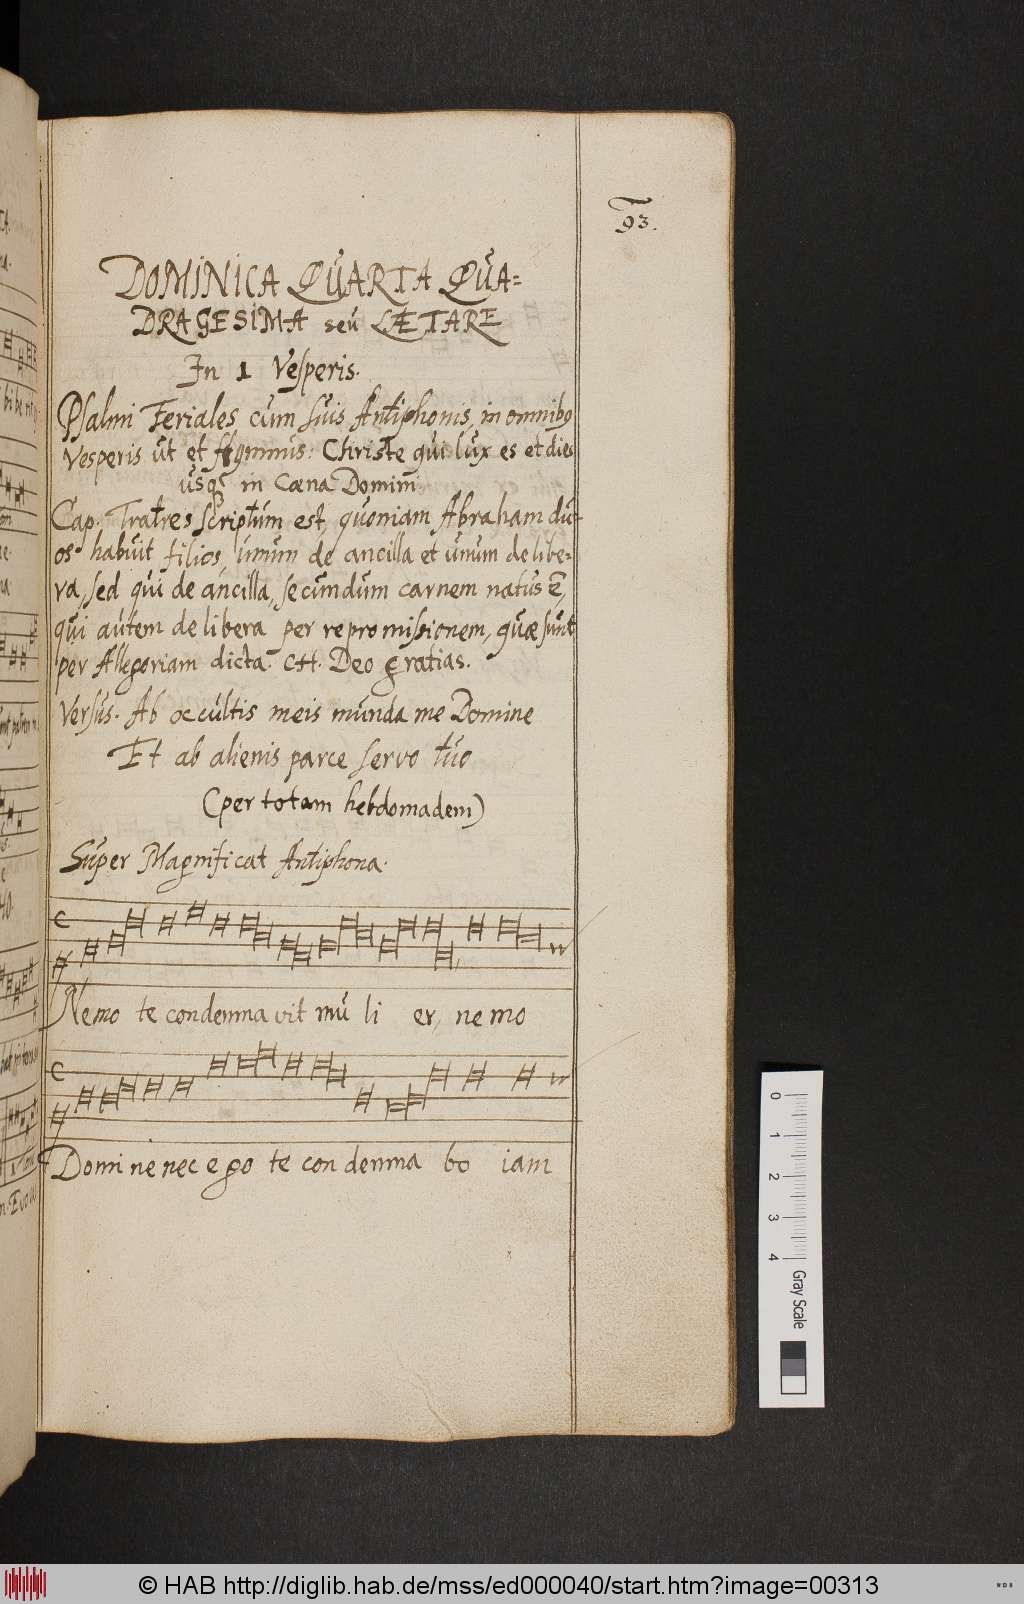 93.
DOMINICA QUARTA QUA=
DRAGESIMA seu LÆTARE
In 1 Vesperis.
Psalmi Feriales cum suis Antiphonis, in omnibꝯ
Vesperis ut et Hymnus: Christe qui lux es et dies
usqꝫ in Cœna Domini
Cap. Fratres scriptum est, quoniam Abraham du-
os habuit filios, unum de ancilla et unum de libe-
ra, sed qui de ancilla, secundum carnem natus ē,
qui autem de libera per repromissionem, quæ sunt
per Allegoriam dicta. CH. Deo gratias.
Versus. Ab occultis meis munda me Domine
Et ab alienis parce servo tuo
(per totam hebdomadem)
Super Magnificat Antiphona.
Nemo te condemna vit mu li er, ne mo
Domi ne nec e go te con demna bo iam
0 1 2 3 4 Gray Scale
© HAB http://diglib.hab.de/mss/ed000040/start.htm?image=00313